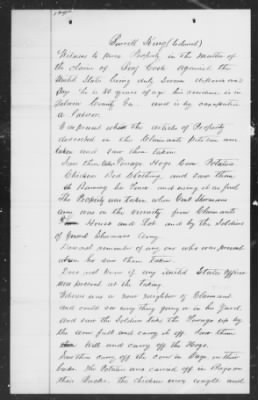 Burrell King (Colored)
Witness to prove Property in the matter of
the claim of Cook against the
United States being duly sworn deposes and
Say he is 40 years of age his residence is in
County Ga. and is by occupation
a laborer.
I was present when the articles of Property
described in the Claimants petition were
taken and saw them taken.
Saw them take Forage Hogs Corn Potatoes
Chicken Bed Clothing and saw them
Burning his Fence and using it as fuel
The Property was taken when Genl Shermans
Army was in the vicinity from Claimants
House and Lot and by the Soldiers
of General Shermans Army.
Does not remember of any one who was present
when he saw them taken.
Does not know of any United States Officer
was present at the taking.
Witness was a near neighbor of Claimant
and could see every thing going on in his yard
and saw the Soldiers take the Forage up by
the arm full and carry it off. Saw them
kill and carry off the Hogs.
Saw them carry off the corn in Bags on their
backs. The Potatoes was carried off in Bags on
their Backs. the chicken was caught and